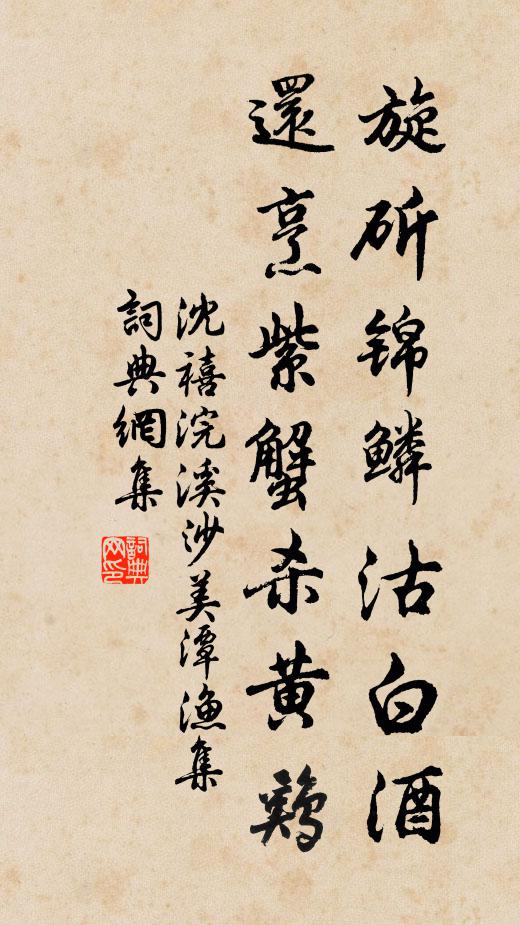 旋斫锦鳞沽白酒
還烹紫蟹杀黄鷄
沈禧浣溪沙美潭漁集
詞典網集
詞典網印